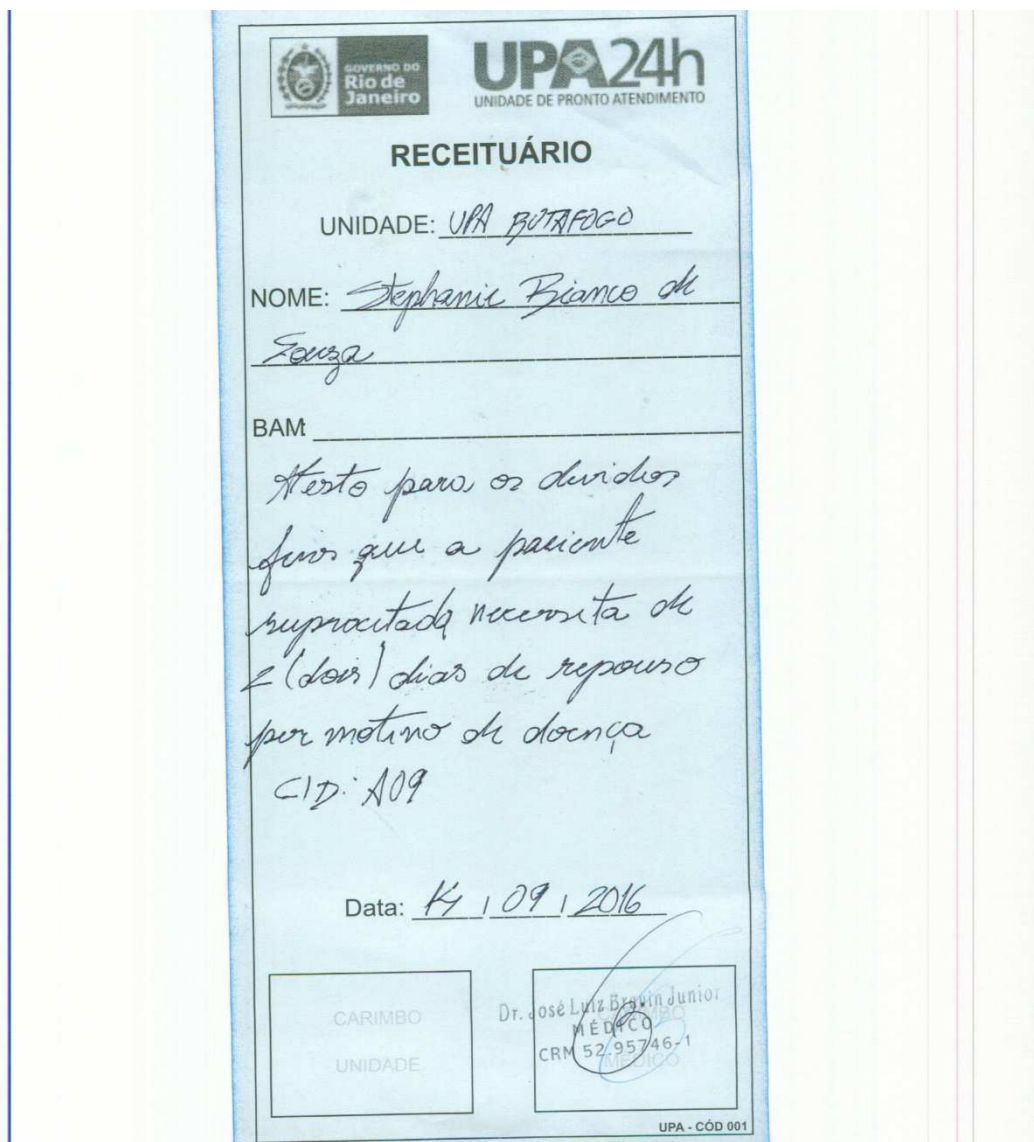 GOVERNO DO
Rio de
Janeiro
UPA24h
UNIDADE DE PRONTO ATENDIMENTO
RECEITUÁRIO
UNIDADE: UPA BOTAFOGO
NOME: Stephanie Bianco de
Souza
BAM
Atesto para os devidos
fins que a paciente
supracitada necessita de
2 (dois) dias de repouso
por motivo de doença
CID: A09
Data: / 09 / 2016
CARIMBO
UNIDADE
Dr. José Luiz Junior
CARIMBO
MÉDICO
CRM 52.95746-1
MÉDICO
UPA - CÓD 001